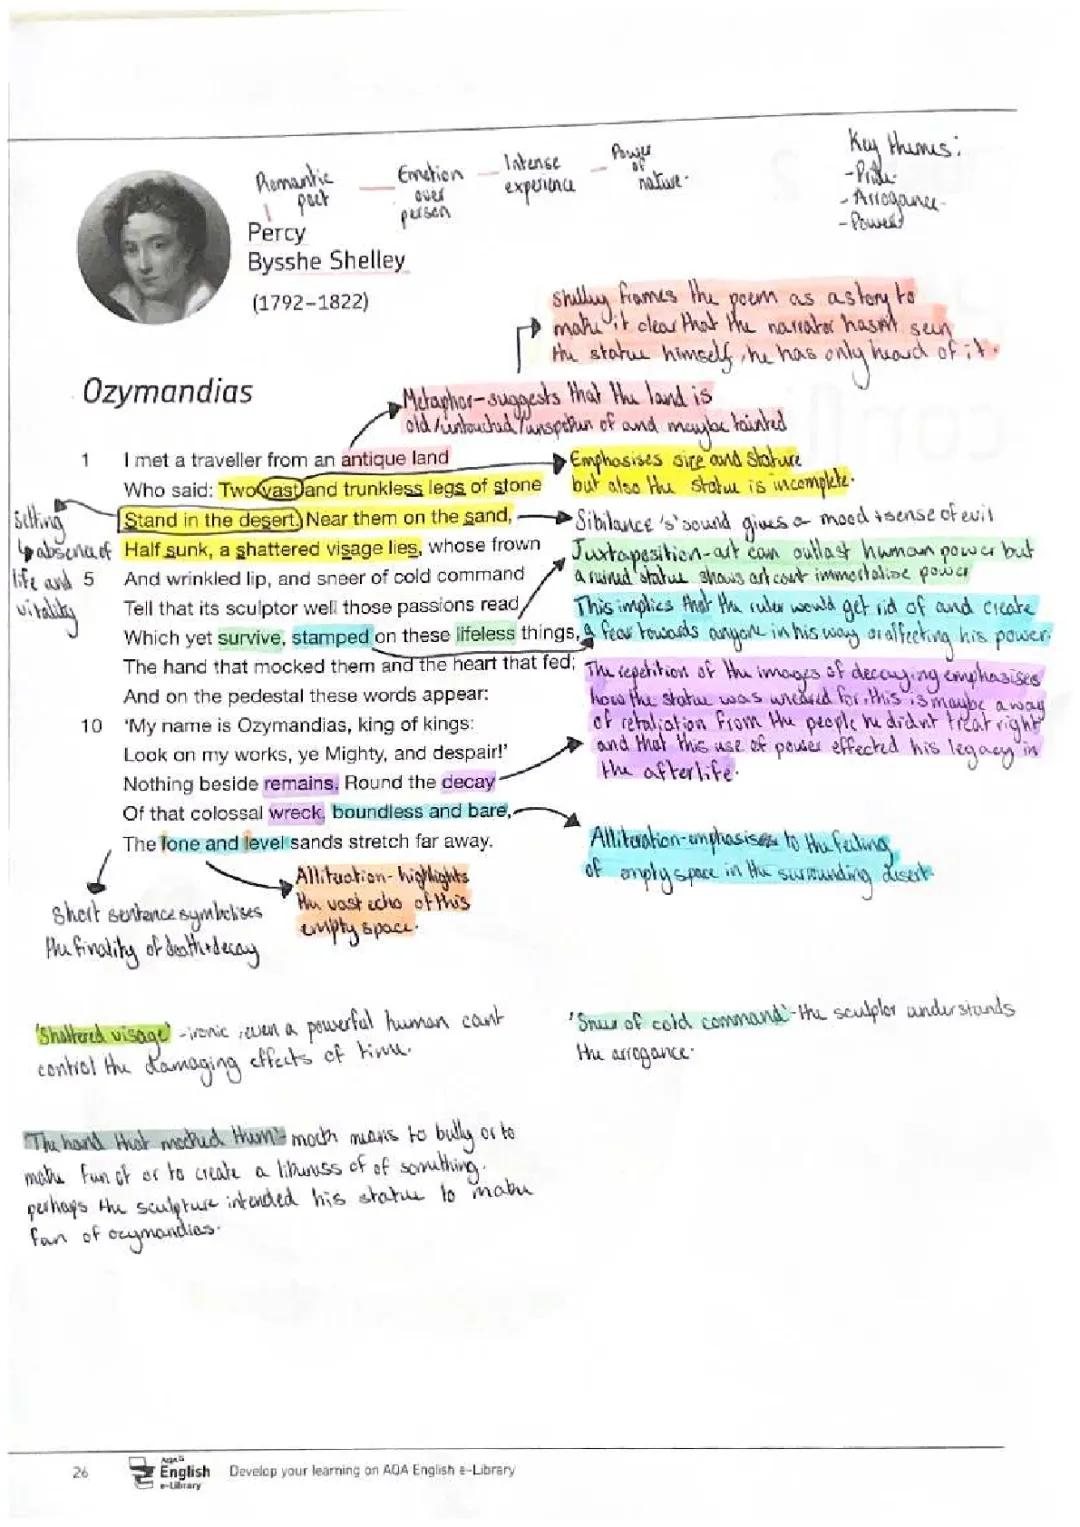 Romantic poet — Emotion over person — Intense experience — Power of nature.
Key themes:
- Pride.
- Arrogance.
- Power
Percy
Bysshe Shelley
(1792–1822)
Shelley frames the poem as a story to
make it clear that the narrator hasn't seen
the statue himself, he has only heard of it.
Ozymandias
Metaphor-suggests that the land is
old/untouched/unspoken of and maybe tainted
1 I met a traveller from an antique land
Who said: Two vast and trunkless legs of stone
Stand in the desert. Near them on the sand,
Half sunk, a shattered visage lies, whose frown
5 And wrinkled lip, and sneer of cold command
Tell that its sculptor well those passions read
Which yet survive, stamped on these lifeless things,
The hand that mocked them and the heart that fed;
And on the pedestal these words appear:
10 'My name is Ozymandias, king of kings:
Look on my works, ye Mighty, and despair!'
Nothing beside remains. Round the decay
Of that colossal wreck, boundless and bare,
The lone and level sands stretch far away.
Setting
↳ absence of
life and
vitality
Emphasises size and stature
but also the statue is incomplete.
Sibilance 's' sound gives a mood + sense of evil
Juxtaposition-art can outlast human power but
a ruined statue shows art cant immortalise power
This implies that the ruler would get rid of and create
a fear towards anyone in his way or affecting his power.
The repetition of the images of decaying emphasises
how the statue was uncared for, this is maybe a way
of retaliation from the people he didnt treat right
and that this use of power effected his legacy in
the afterlife.
Alliteration-emphasises to the feeling
of empty space in the surrounding desert.
Alliteration- highlights
the vast echo of this
empty space.
Short sentence symbolises
the finality of death+decay
'Shattered visage' -ironic, even a powerful human cant
control the damaging effects of time.
'Sneer of cold command'-the sculptor understands
the arrogance.
'The hand that mocked them'- mock means to bully or to
make fun of or to create a likeness of of something.
perhaps the sculpture intended his statue to make
fun of ozymandias.
26
AQA
English
e-Library
Develop your learning on AQA English e-Library